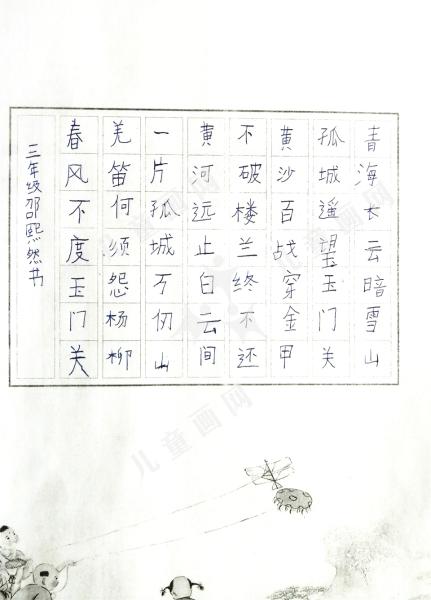 青海长云暗雪山
孤城遥望玉门关
黄沙百战穿金甲
不破楼兰终不还
黄河远止白云间
一片孤城万仞山
羌笛何须怨杨柳
春风不度玉门关
三年级邵熙然书
儿童画网